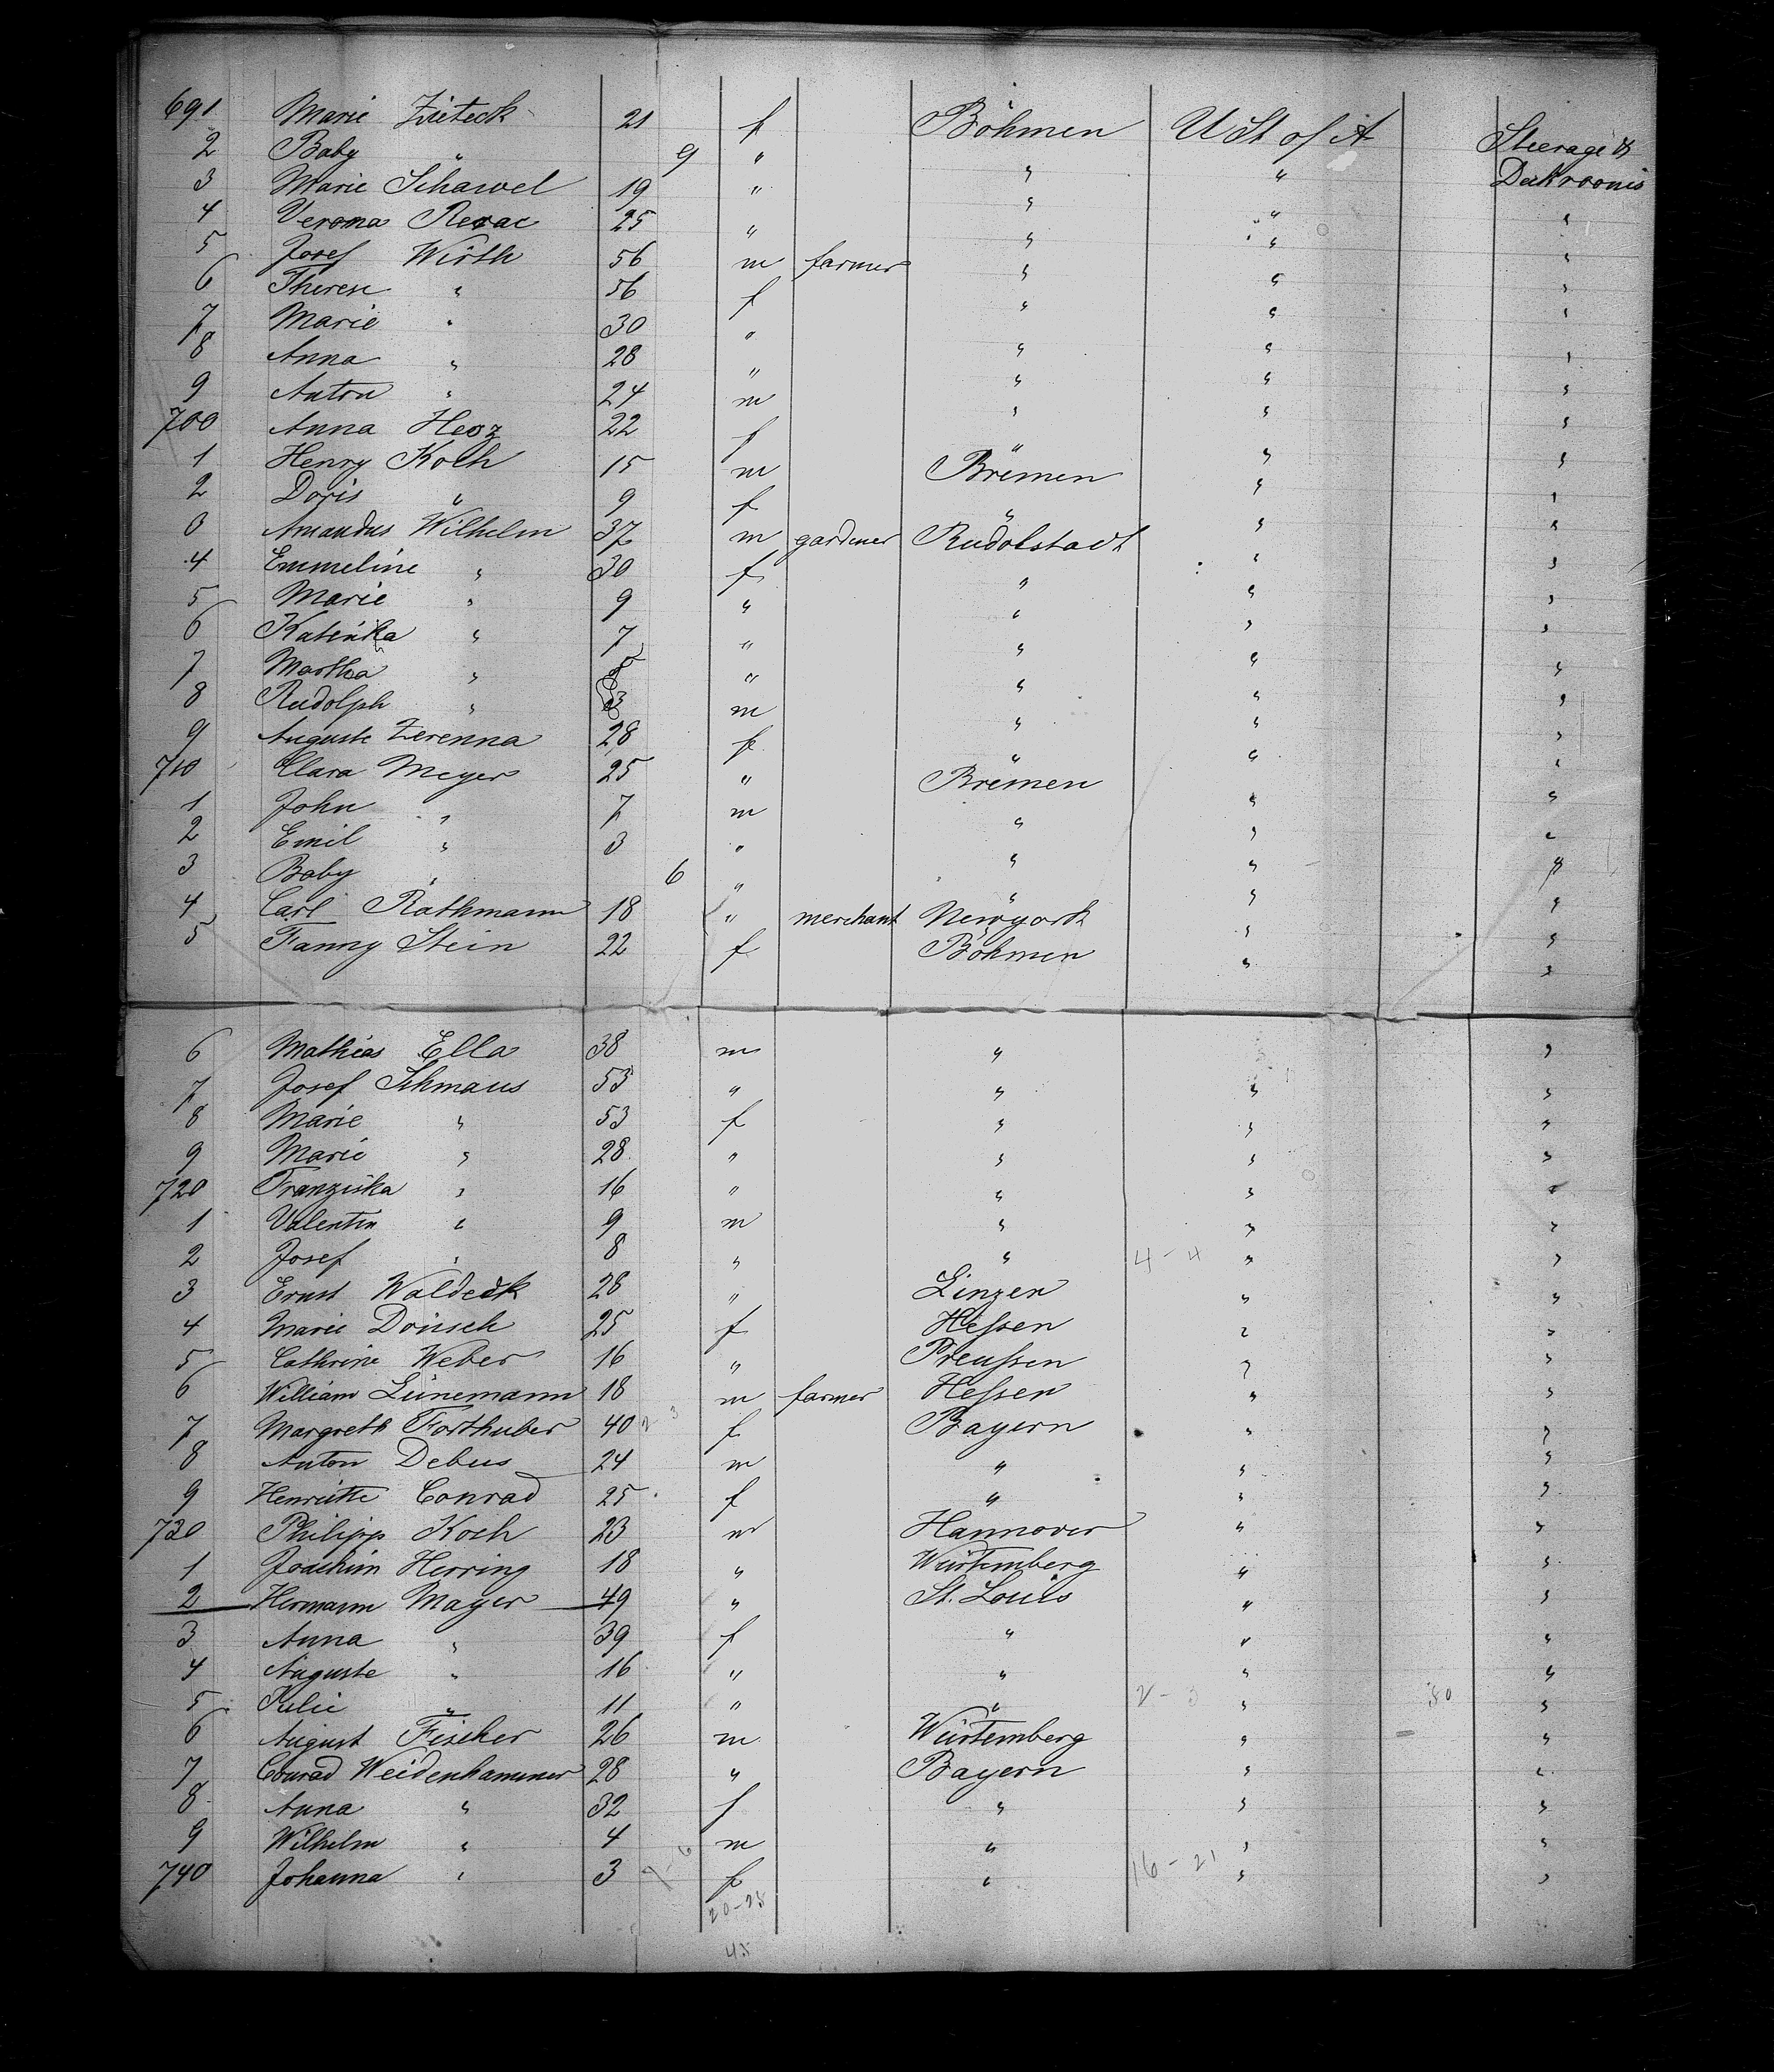 691 Marie Zieteck 21 f Böhmen U St of A Steerage &
2 Baby " 9 " " " Deckrooms
3 Marie Schawel 19 " " " "
4 Verona Rezac 25 " " " "
5 Josef Wirth 56 m farmer " " "
6 Therese " 56 f " " "
7 Marie " 30 " " " "
8 Anna " 28 " " " "
9 Anton " 24 m " " "
700 Anna Herz 22 f " " "
1 Henry Koch 15 m Bremen " "
2 Doris " 9 f " " "
3 Amandus Wilhelm 37 m gardener Rudolstadt " "
4 Emmeline " 30 f " " "
5 Marie " 9 " " " "
6 Katinka " 7 " " " "
7 Martha " 5 " " " "
8 Rudolph " 3 m " " "
9 Auguste Zerenna 28 f " " "
710 Clara Meyer 25 " Bremen " "
1 John " 7 m " " "
2 Emil " 3 " " " "
3 Baby " 6 " " " "
4 Carl Rathmann 18 " merchant Newyork " "
5 Fanny Stein 22 f Böhmen " "
6 Mathias Ella 38 m " "
7 Josef Schmaus 53 " " " "
8 Marie " 53 f " " "
9 Marie " 28 " " " "
720 Franziska " 16 " " " "
1 Valentin " 9 m " " "
2 Josef " 8 " " 4-4 " "
3 Ernst Waldeck 28 " Linzen " "
4 Marie Dönsch 25 f Hessen " "
5 Cathrine Weber 16 " Preussen " "
6 William Lünemann 18 m farmer Hessen " "
7 Margreth Forthuber 40 2-3 f Bayern " "
8 Anton Debus 24 m " " "
9 Henriette Conrad 25 f " " "
730 Philipp Koch 23 m Hannover " "
1 Joachim Herring 18 " Würtemberg " "
2 Hermann Mayer 49 " St. Louis " "
3 Anna " 39 f " " "
4 Auguste " 16 " " " "
5 Julie " 11 " " 2-3 " 80 "
6 August Fischer 26 m Würtemberg " "
7 Conrad Weidenhammer 28 " Bayern " "
8 Anna " 32 f " " "
9 Wilhelm " 4 m " " "
740 Johanna " 3 f " 16-21 " "
20-25
45